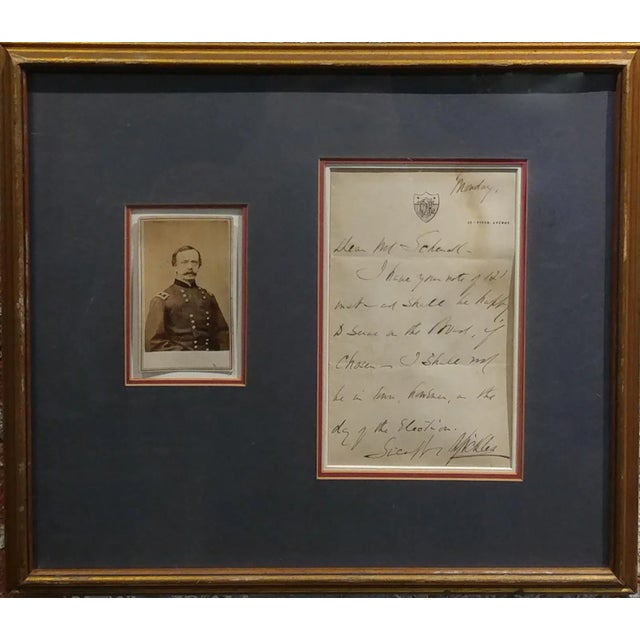 Monday,
FIFTH AVENUE
Dear Mr
I have your note of 1st
inst and shall be happy
to serve on the Board, if
chosen - I shall not
be in town, however, on the
day of the Election.